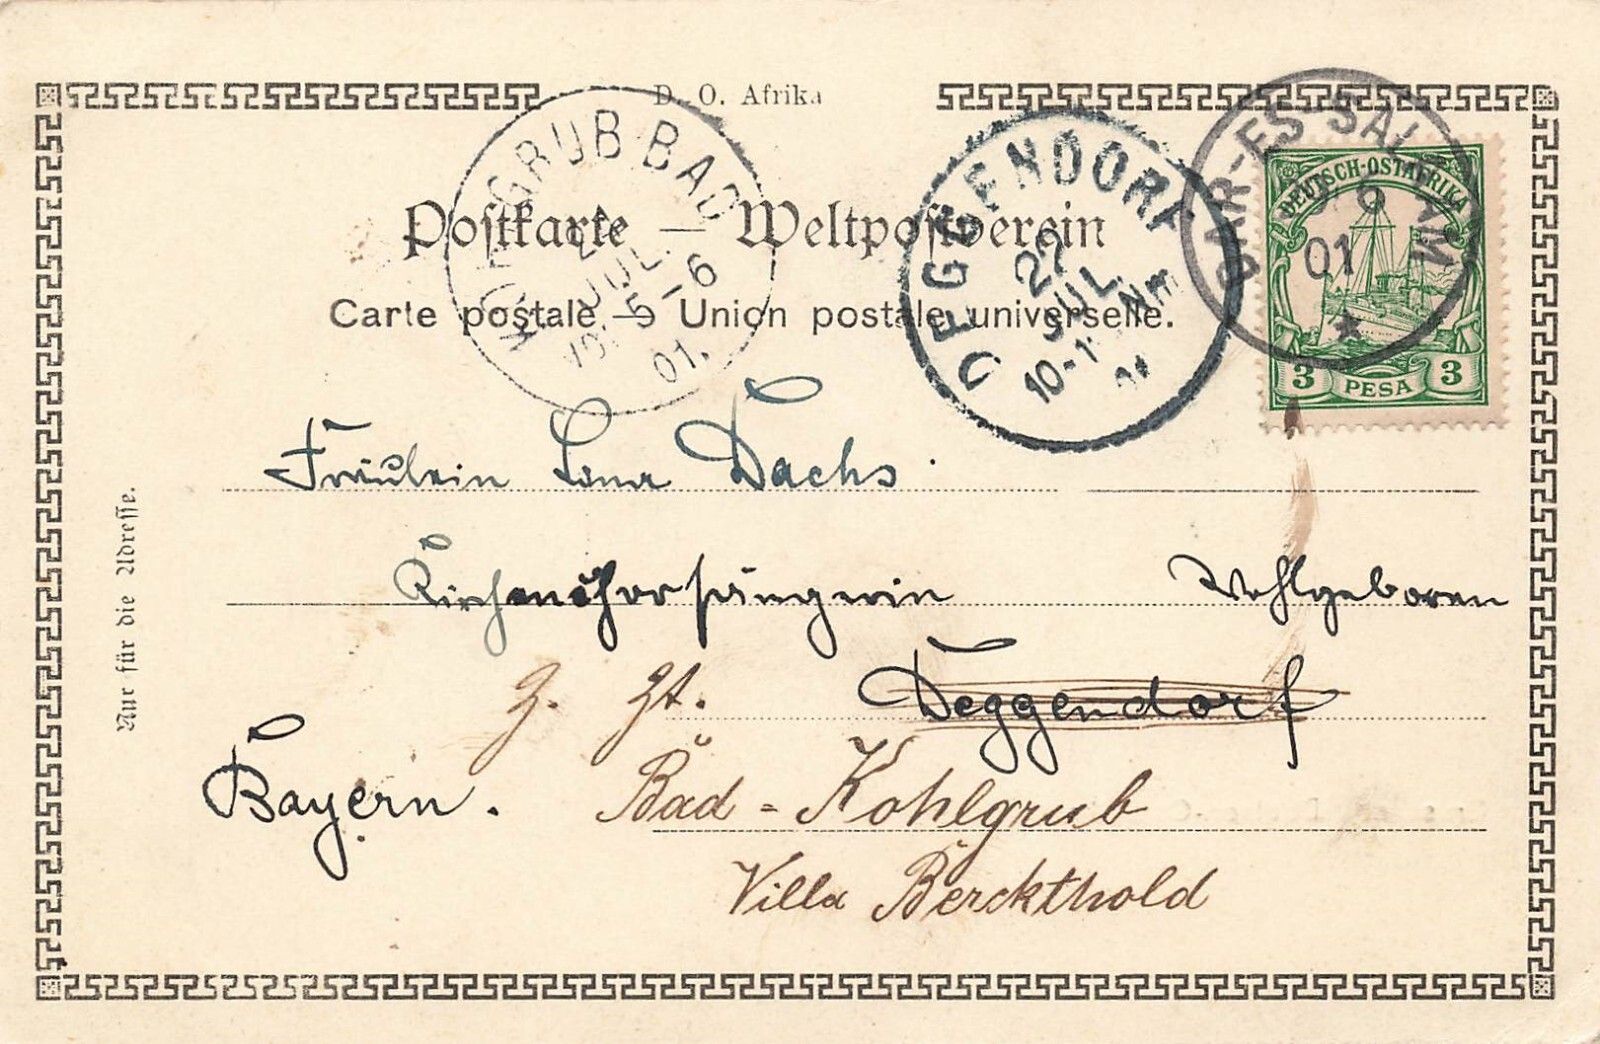 D. O. Afrika
Postkarte — Weltpostverein
Carte postale — Union postale universelle.
DEGGENDORF
22
JUL.
10-1
DAR-ES-SALAAM
01
DEUTSCH-OSTAFRIKA
3 PESA 3
GRUB BAD
JUL.
5-6
01.
Nur für die Adresse.
Fräulein Lena Dachs
Kirchenchorsängerin Wohlgeboren
z. Zt. Deggendorf
Bayern. Bad - Kohlgrub
Villa Berckthold